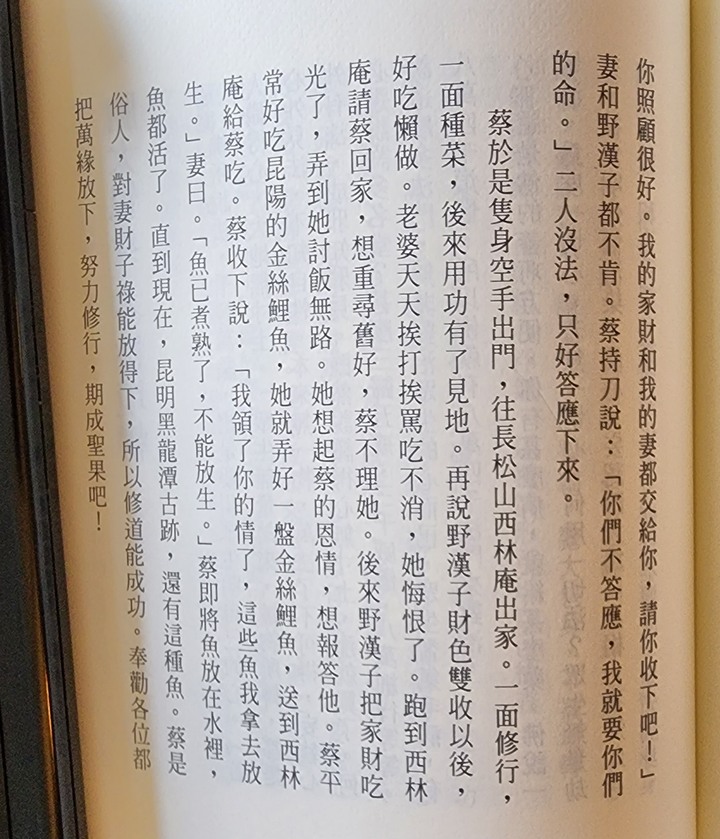 你照顧很好。我的家財和我的妻都交給你，請你收下吧！」
妻和野漢子都不肯。蔡持刀說：「你們不答應，我就要你們
的命。」二人沒法，只好答應下來。
蔡於是隻身空手出門，往長松山西林庵出家。一面修行，
一面種菜，後來用功有了見地。再說野漢子財色雙收以後，
好吃懶做。老婆天天挨打挨罵吃不消，她悔恨了。跑到西林
庵請蔡回家，想重尋舊好，蔡不理她。後來野漢子把家財吃
光了，弄到她討飯無路。她想起蔡的恩情，想報答他。蔡平
常好吃昆陽的金絲鯉魚，她就弄好一盤金絲鯉魚，送到西林
庵給蔡吃。蔡收下說：「我領了你的情了，這些魚我拿去放
生。」妻曰。「魚已煮熟了，不能放生。」蔡即將魚放在水裡，
魚都活了。直到現在，昆明黑龍潭古跡，還有這種魚。蔡是
俗人，對妻財子祿能放得下，所以修道能成功。奉勸各位都
把萬緣放下，努力修行，期成聖果吧！